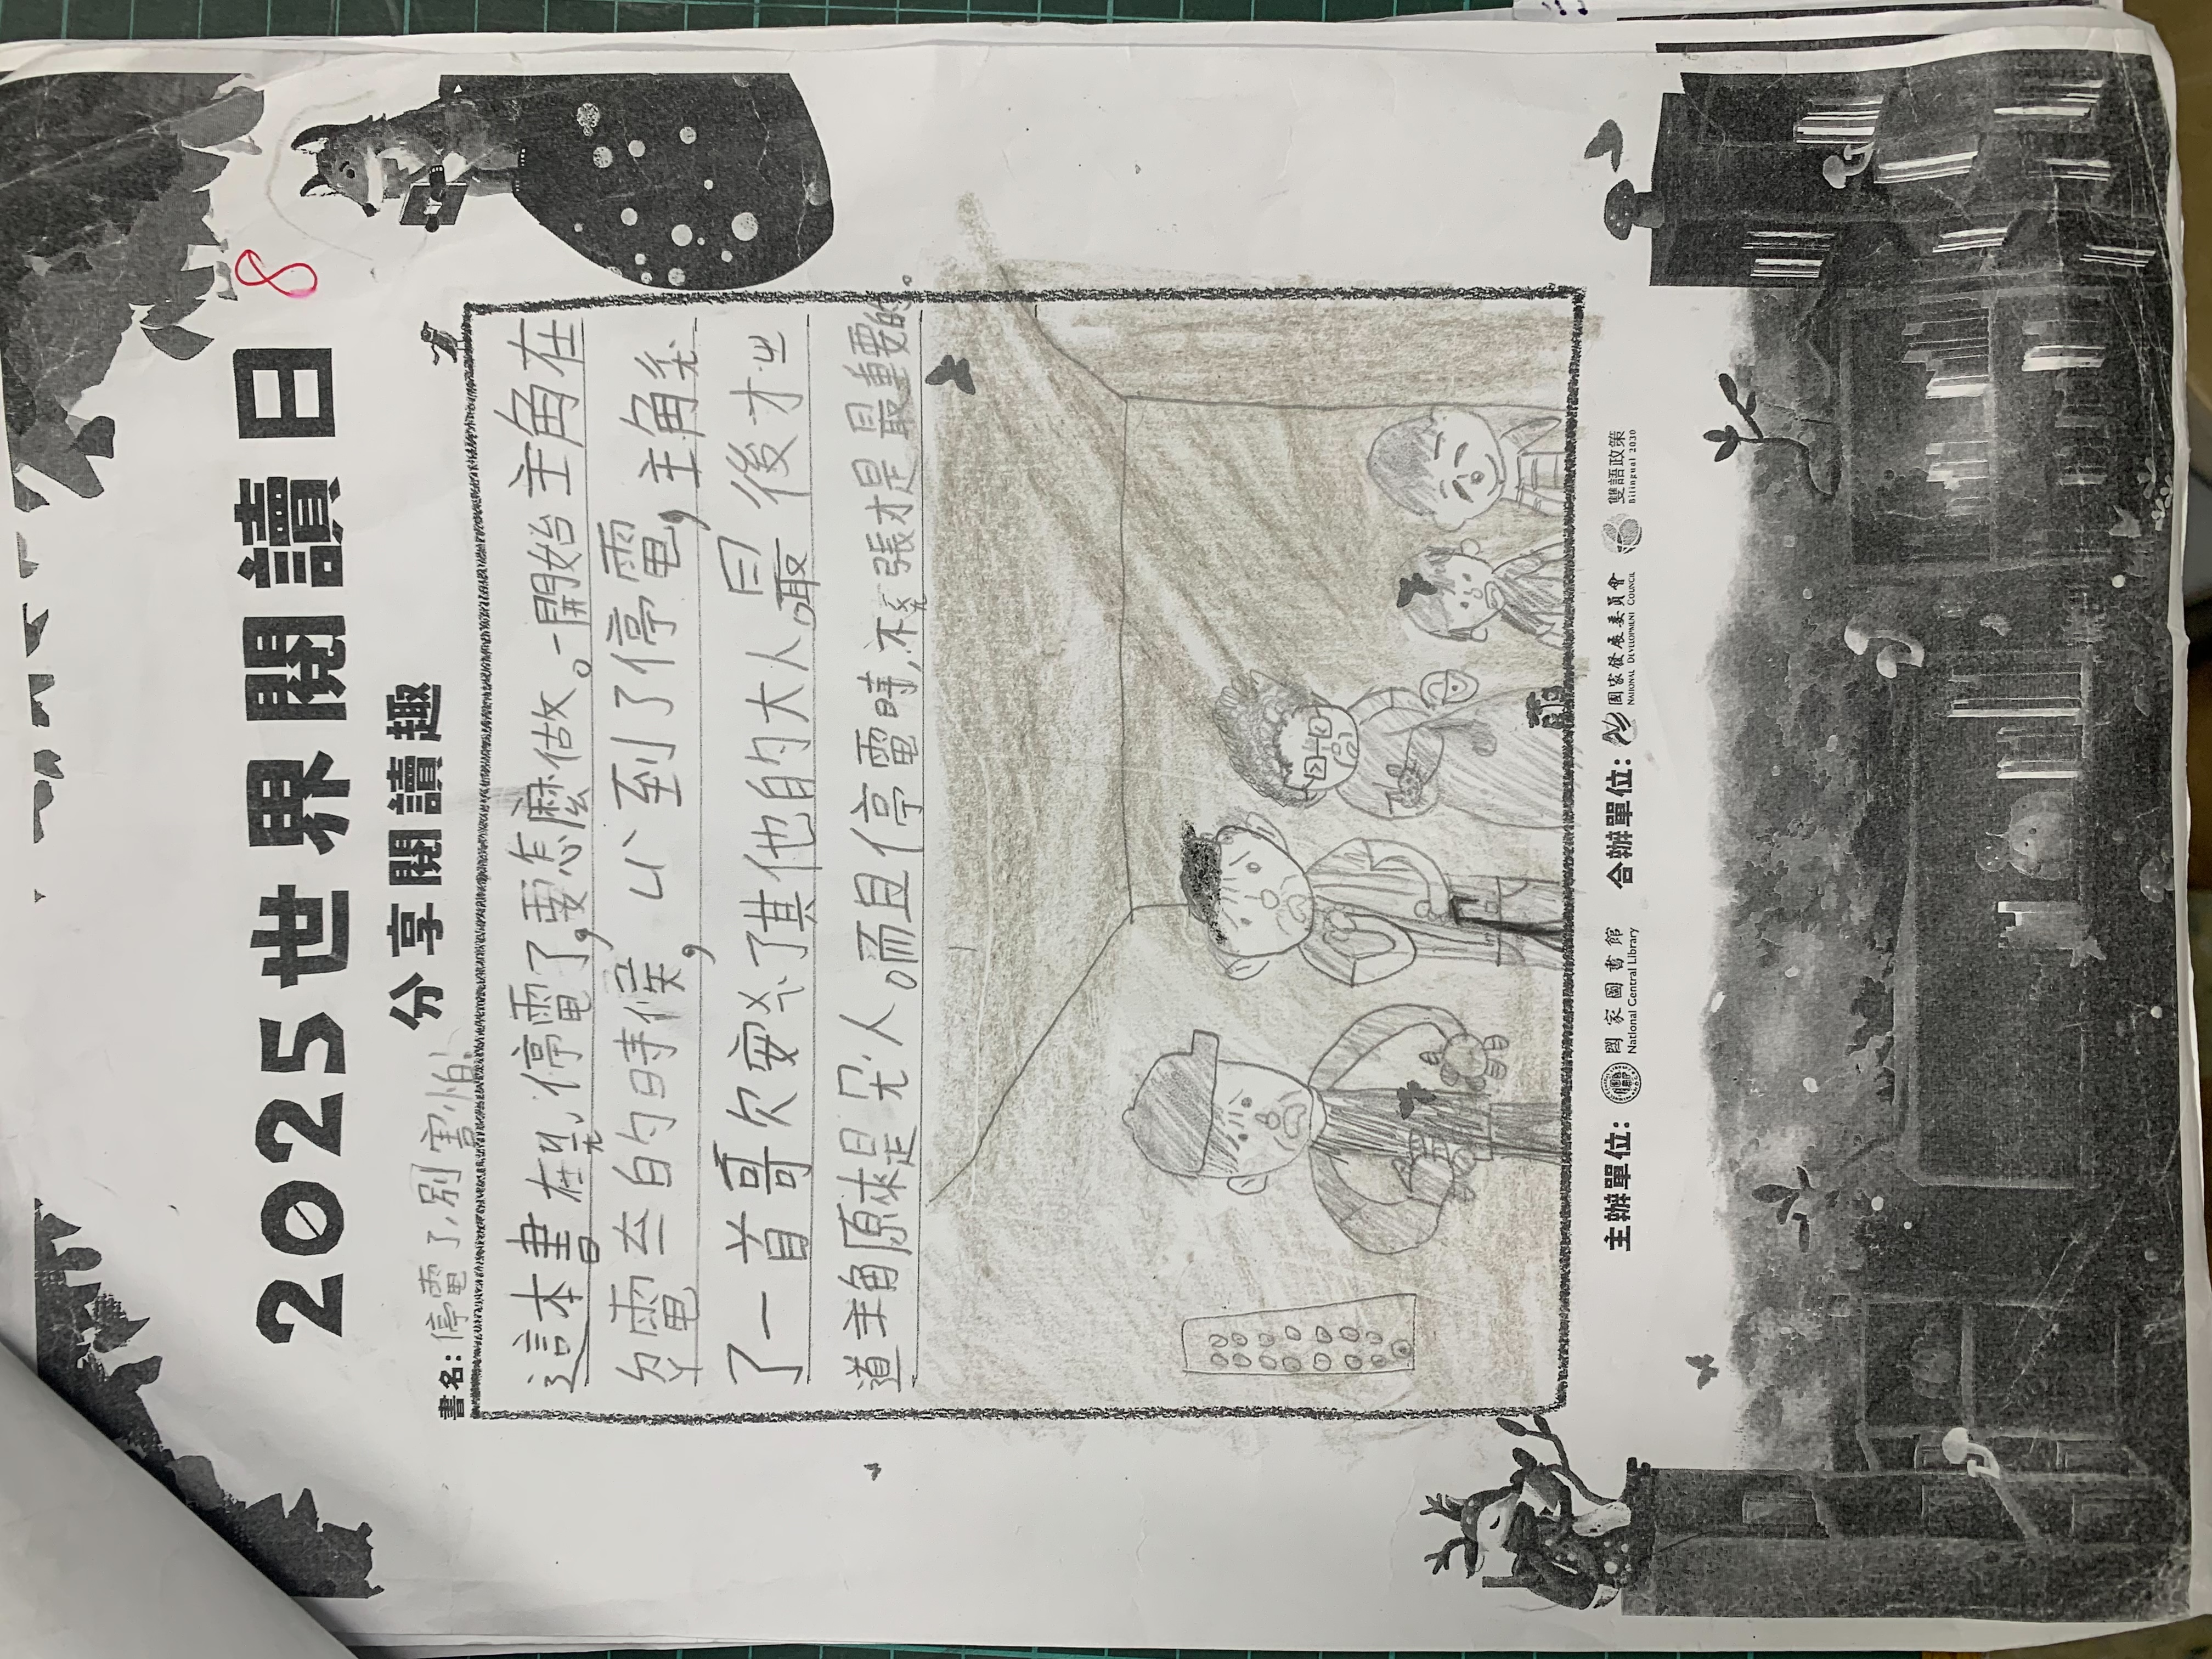 2025世界閱讀日
8
分享閱讀趣
書名：停電了，別害怕！
這本書在停電了，要怎麼做。一開始主角在
ㄉㄚ電ㄊㄧ的時候，ㄩˋ到了停電，主角ㄔㄤˋ
了一首歌安ㄨㄟˋ了其他的大人。最後才ㄓ
道主角原來是ㄇㄤˊ人。而且停電時，不ㄐㄧㄣˇ張才是最重要的。
主辦單位： 國家圖書館 National Central Library 合辦單位： 國家發展委員會 NATIONAL DEVELOPMENT COUNCIL 雙語政策 Bilingual 2030